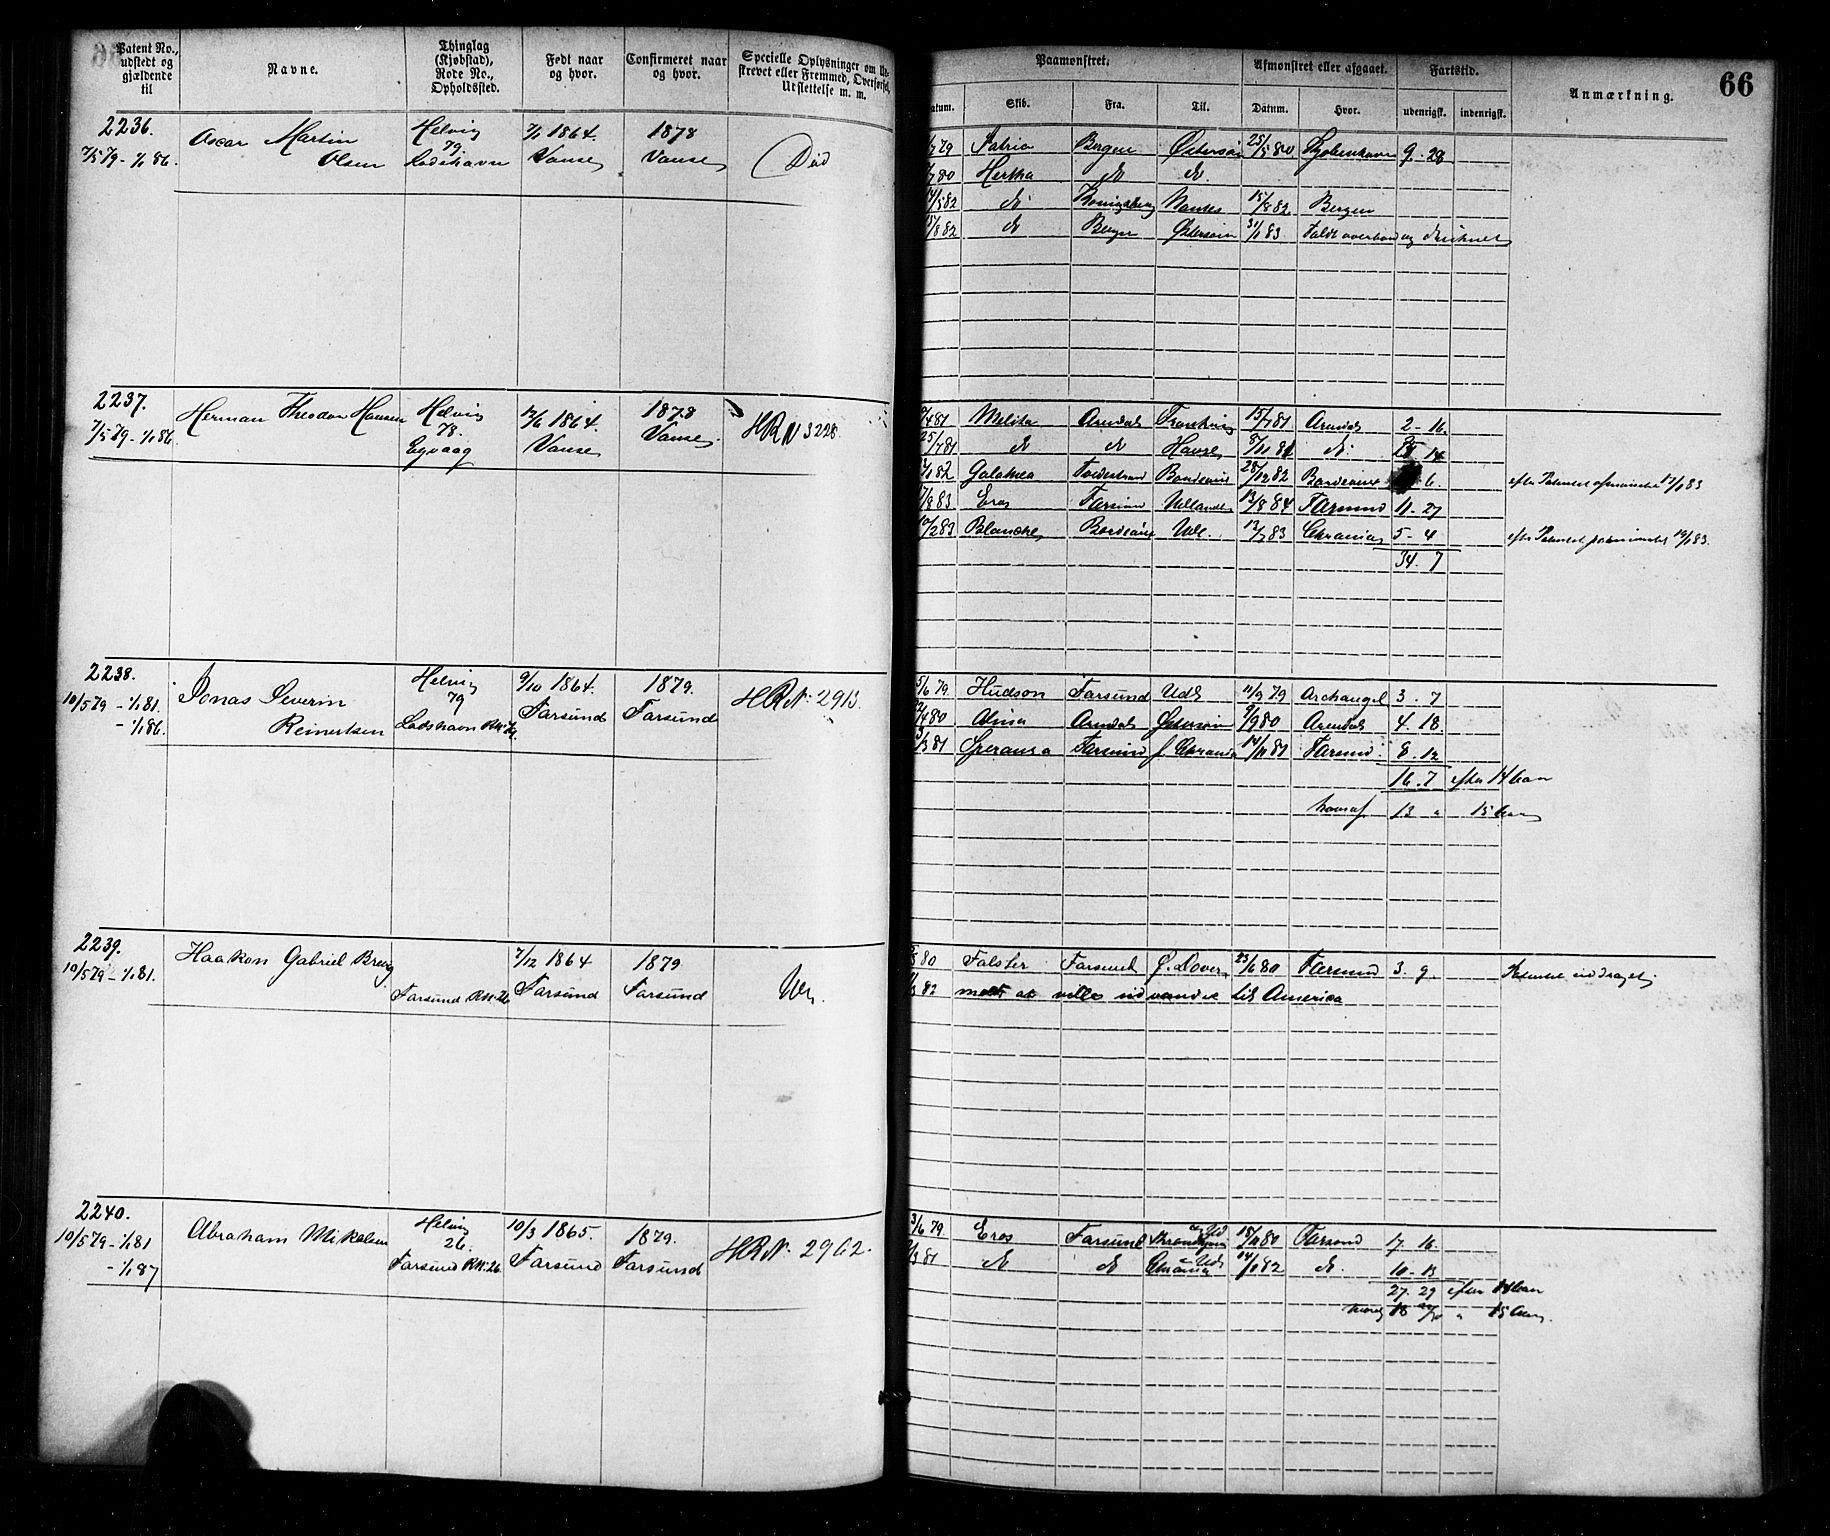 Patent No., udstedt og gjældende til
Navne.
Thinglag (Kjøbstad), Rode No., Opholdssted.
Født naar og hvor.
Confirmeret naar og hvor.
Specielle Oplysninger om Ud-
strevet eller Fremmed, Overførsel,
Udslettelse m. m.
2236.
7/5 79 - 1/1 86.
Oscar Martin
Olsen
Helvig
79
Ladshavn
1864.
Vanse
1878
Vanse
Død
2237.
7/5 79 - 1/1 86.
Herman Theodor Hansen
Helvig
78.
Eyvaag
12/6 1864.
Vanse
1878
Vanse.
HRN 3228
2238.
10/5 79 - 1/1 81.
- 1/1 86.
Jonas Severin
Reinertsen
Helvig
79
Ladshavn
9/10 1864.
Farsund
1879.
Farsund
HRN. 2913.
2239.
10/5 79 - 1/1 81.
Haakon Gabriel
Farsund RN. 26
7/12 1864
Farsund
1879
Farsund
2240.
10/5 79 - 1/1 81
- 1/1 87
Abraham Mikalsen
Helvig
26.
Farsund RN. 26
10/3 1865.
Farsund
1879.
Farsund
HRN. 2962.
66
Paamønstret.
Afmønstret eller afgaaet.
Fartstid.
Anmærkning.
Datum.
Skib.
Fra.
Til.
Datum.
Hvor.
udenrigst.
indenrigst.
79 Patria Bergen Østersøen 25/5 80 Kjøbenhavn 9 - 28
80 Hertha do do.
82 do Nantes 15/8 82 Bergen
15/8 82 do Bergen Østersøen 31/1 83 Faldt overbord og druknet
81 Melita Arendal 15/7 81 Arendal 2 - 16.
25/7 81 do do Havre 8/11 81 do. 14
82 Galathea Bordeaux 28/12 82 Bordeaux 6.
83 Eros Farsund Udlandet 13/8 84 Farsund 11 - 27
10/2 83 Blanche Bordeaux Udl. 12/7 83 Chrania 5 - 4
34. 7
79 Hudson Farsund Udl 11/9 79 Archangel 3 . 7
80 Alma Arendal Østersøen 9/9 80 Arendal 4. 18
81 Speransa Farsund Chrania 14/11 81 Farsund 8. 12
16. 7 efter 14 Aar
hvoraf 13 " 15 Aar
80 Falster Farsund Dover 23/6 80 Farsund 3. 9. Patentet inddraget
82 at ville udvandre til America
3/6 79 Eros Farsund 18/11 80 Farsund 17 16.
81 do do Chrania 14/1 82 do. 10 - 13
27. 29 efter 14 Aar
15 Aar